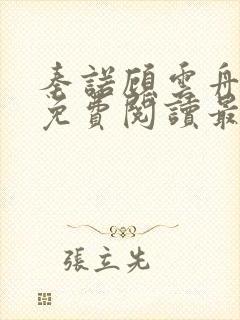 秦諾顧雲舟
免費閱讀最
張立先